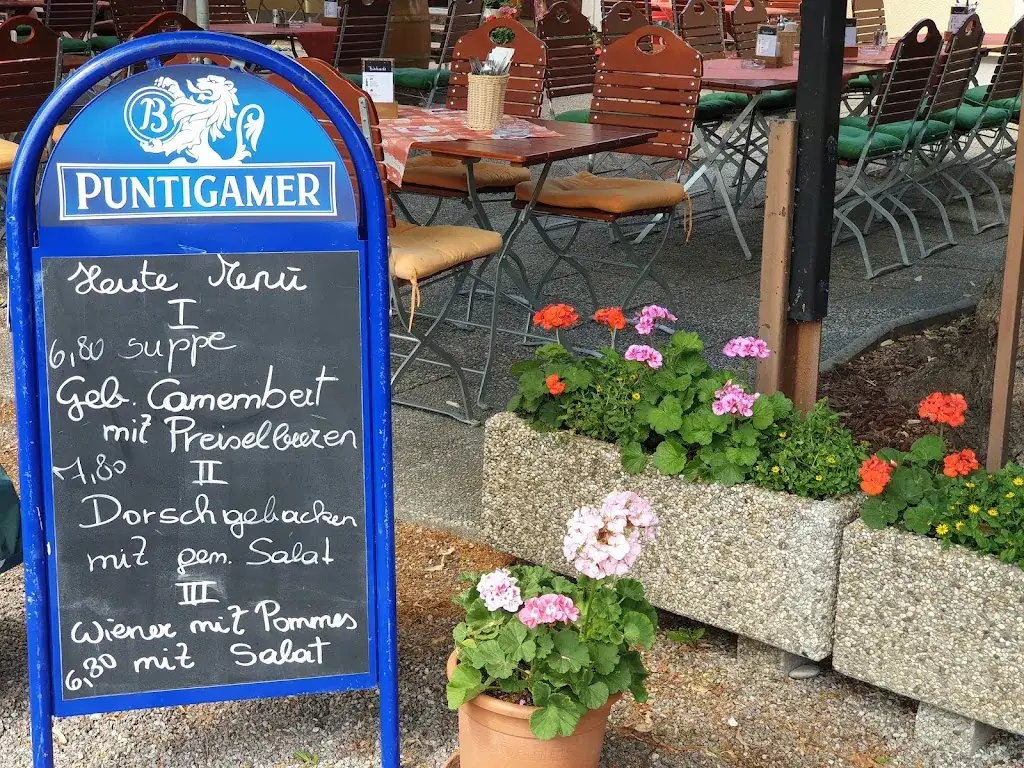 B
PUNTIGAMER
Heute Menü
I
6,80 suppe
Geb. Camembert
mit Preiselbeeren
7,80 II
Dorschgebacken
mit gem. Salat
III
Wiener mit Pommes
6,80 mit Salat